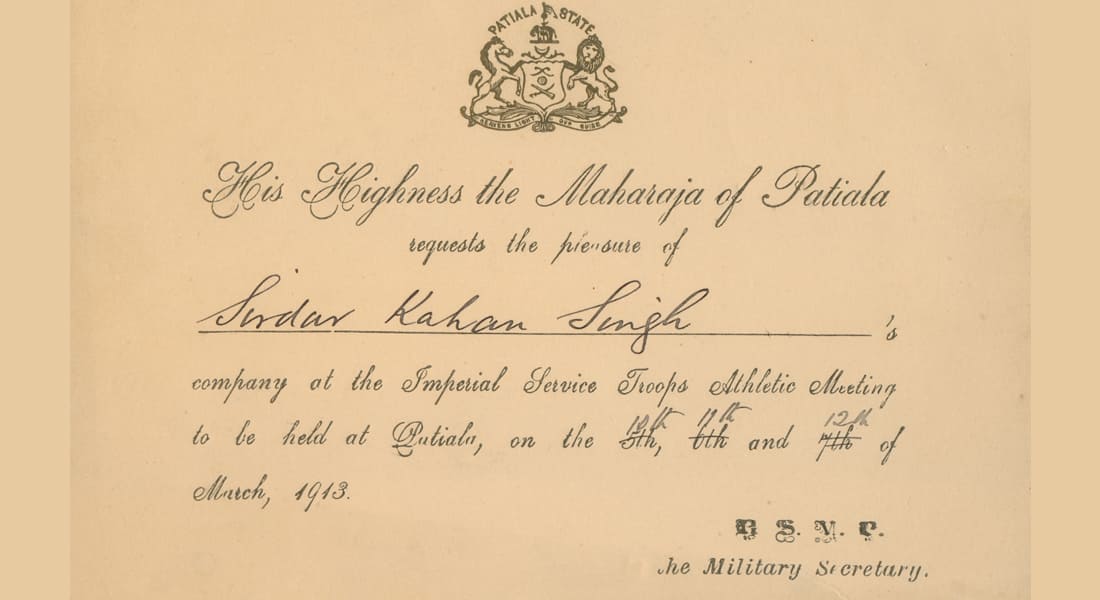 PATIALA STATE
HEAVENS LIGHT OUR GUIDE
His Highness the Maharaja of Patiala
requests the pleasure of
Sirdar Kahan Singh 's
company at the Imperial Service Troops Athletic Meeting
10th 11th 12th
to be held at Patiala, on the 5th, 6th and 7th of
March, 1913.
R. S. V. P.
The Military Secretary.